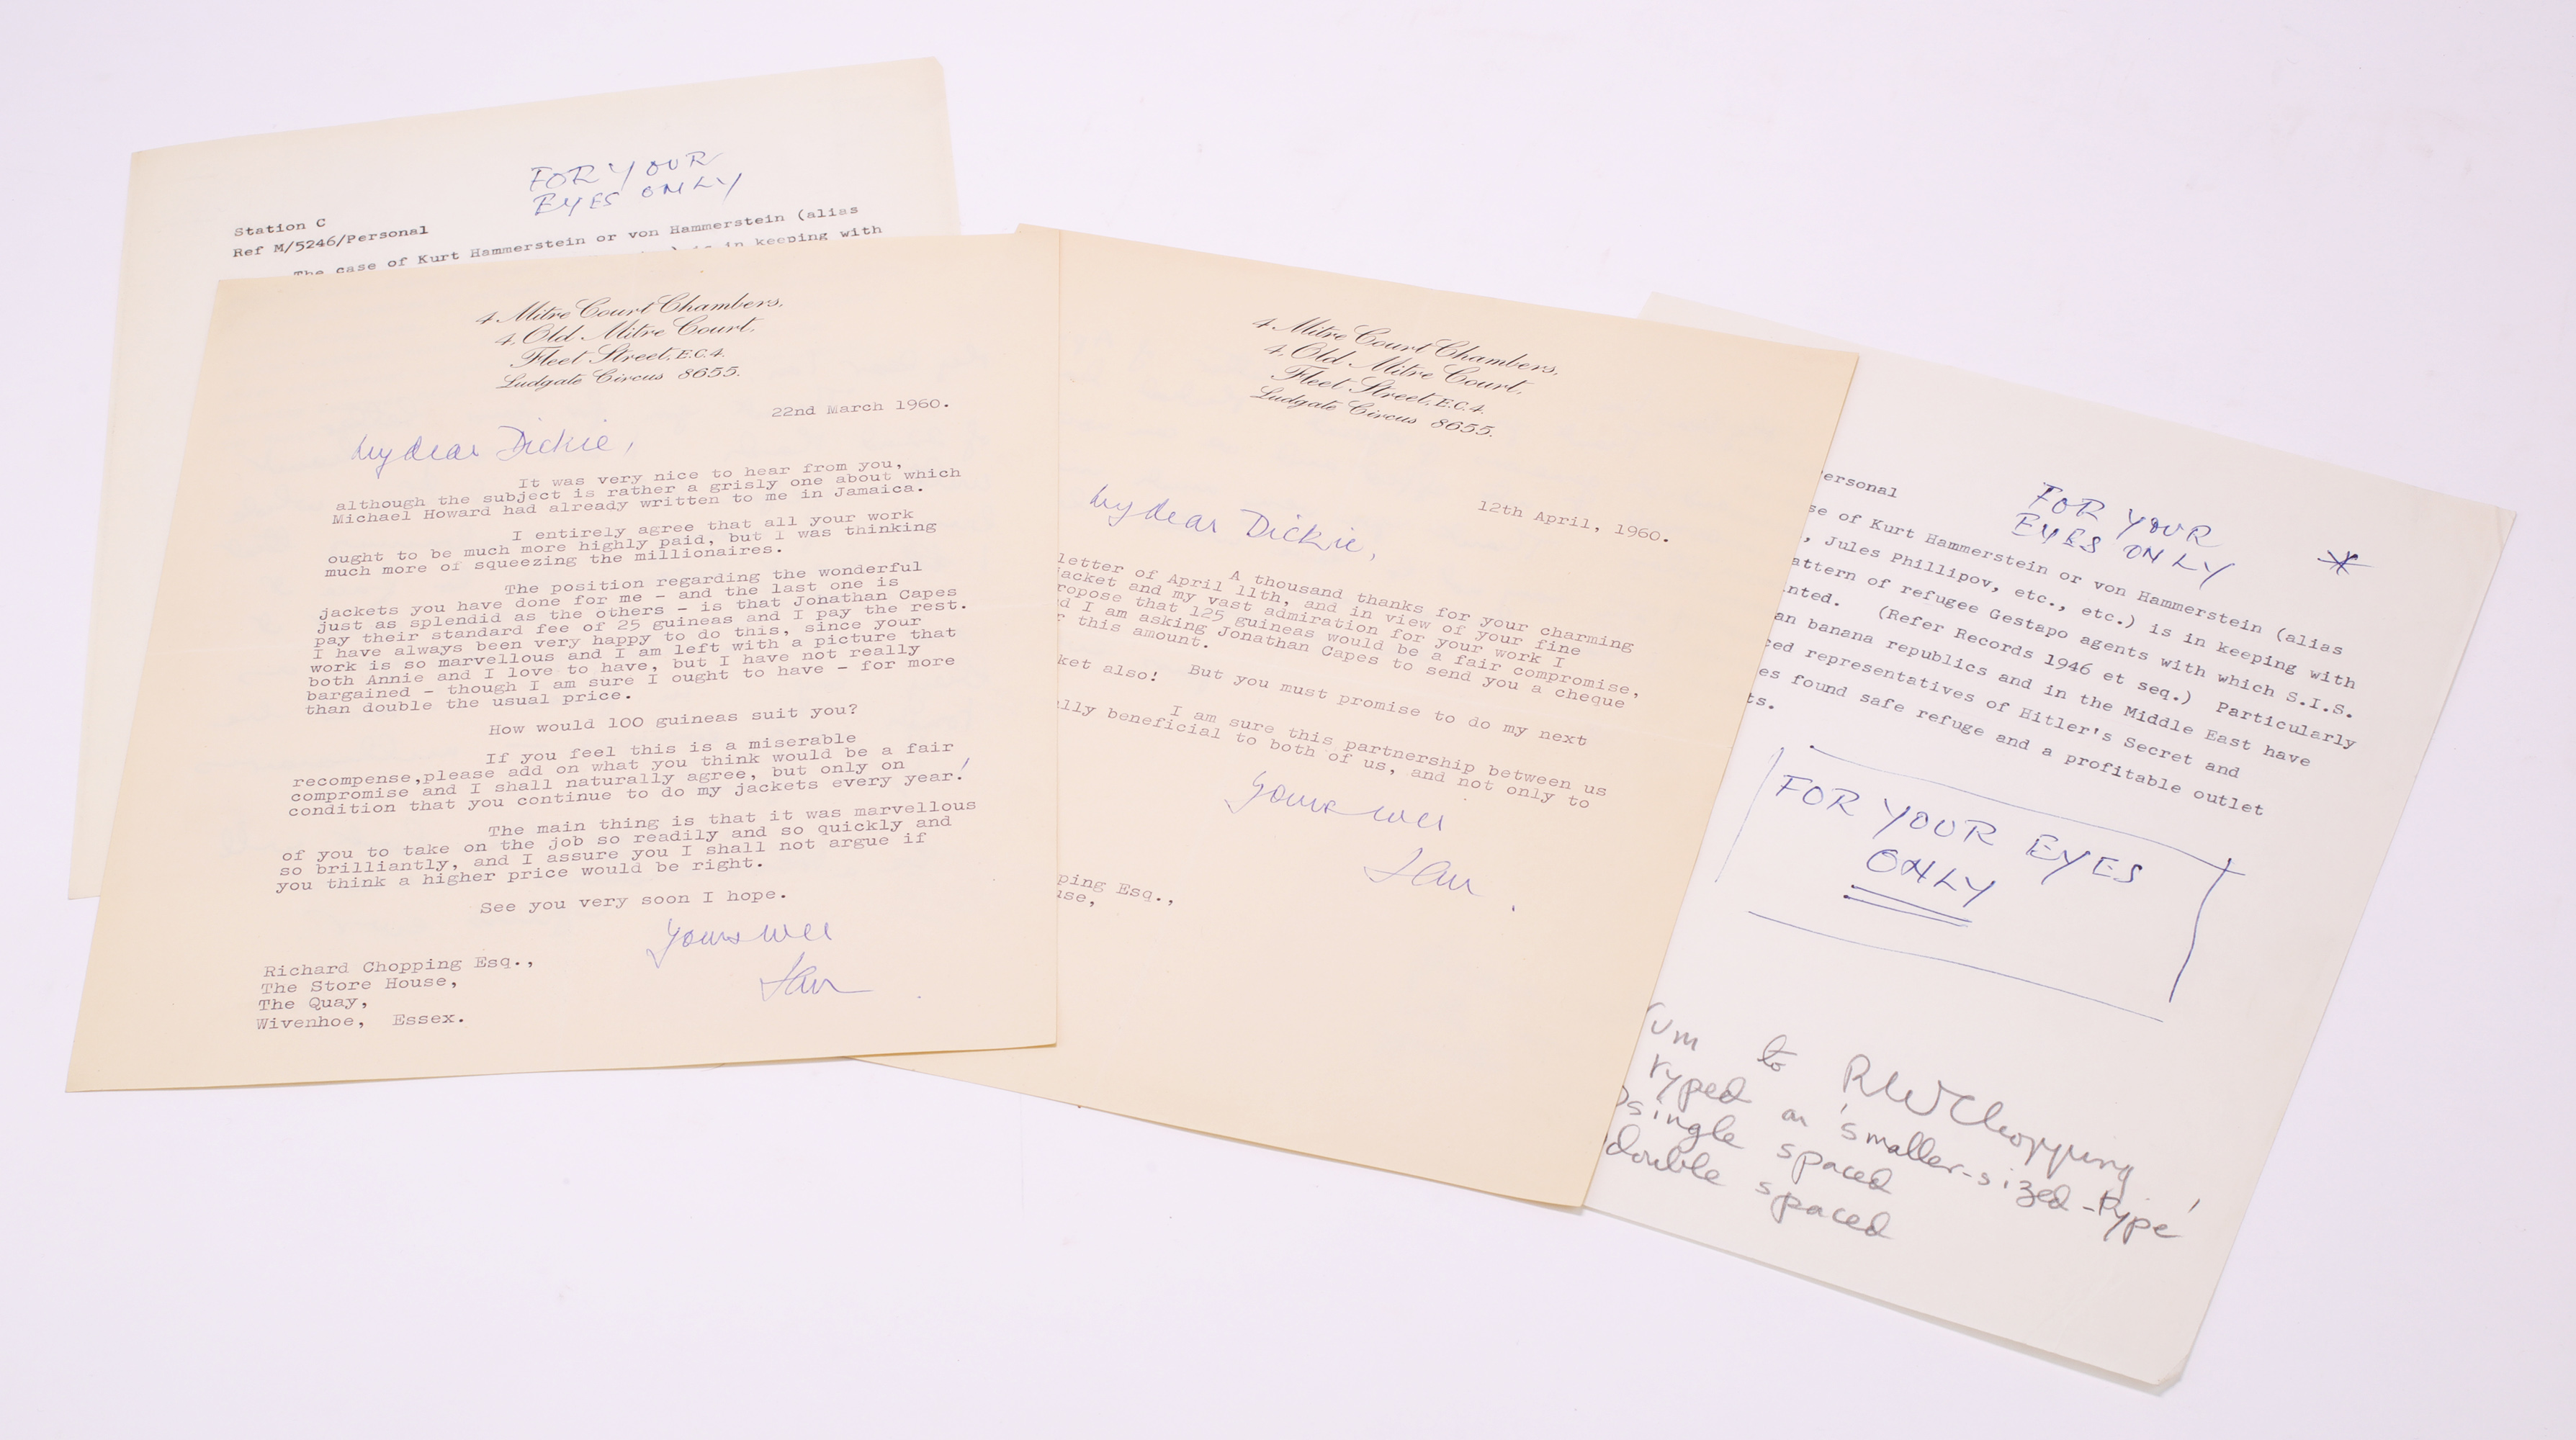 FOR YOUR
EYES ONLY
Station C
Ref M/5246/Personal
The case of Kurt Hammerstein or von Hammerstein (alias
is in keeping with
4 Mitre Court Chambers,
4, Old Mitre Court,
Fleet Street, E.C.4.
Ludgate Circus 8655.
22nd March 1960.
My dear Dickie,
It was very nice to hear from you,
although the subject is rather a grisly one about which
Michael Howard had already written to me in Jamaica.
I entirely agree that all your work
ought to be much more highly paid, but I was thinking
much more of squeezing the millionaires.
The position regarding the wonderful
jackets you have done for me - and the last one is
just as splendid as the others - is that Jonathan Capes
pay their standard fee of 25 guineas and I pay the rest.
I have always been very happy to do this, since your
work is so marvellous and I am left with a picture that
both Annie and I love to have, but I have not really
bargained - though I am sure I ought to have - for more
than double the usual price.
How would 100 guineas suit you?
If you feel this is a miserable
recompense,please add on what you think would be a fair
compromise and I shall naturally agree, but only on
condition that you continue to do my jackets every year!
The main thing is that it was marvellous
of you to take on the job so readily and so quickly and
so brilliantly, and I assure you I shall not argue if
you think a higher price would be right.
See you very soon I hope.
Yours ever
Ian
Richard Chopping Esq.,
The Store House,
The Quay,
Wivenhoe, Essex.
4 Mitre Court Chambers,
4, Old Mitre Court,
Fleet Street, E.C.4.
Ludgate Circus 8655.
12th April, 1960.
My dear Dickie,
A thousand thanks for your charming
letter of April 11th, and in view of your fine
jacket and my vast admiration for your work I
ropose that 125 guineas would be a fair compromise,
d I am asking Jonathan Capes to send you a cheque
r this amount.
But you must promise to do my next
ket also!
I am sure this partnership between us
lly beneficial to both of us, and not only to
Yours ever
Ian
ping Esq.,
use,
ersonal
FOR YOUR
EYES ONLY
*
se of Kurt Hammerstein or von Hammerstein (alias
, Jules Phillipov, etc., etc.) is in keeping with
attern of refugee Gestapo agents with which S.I.S.
nted. (Refer Records 1946 et seq.) Particularly
an banana republics and in the Middle East have
ced representatives of Hitler's Secret and
es found safe refuge and a profitable outlet
ts.
FOR YOUR EYES
ONLY
um to RWChopping
typed on 'smaller-sized-type'
single spaced
double spaced